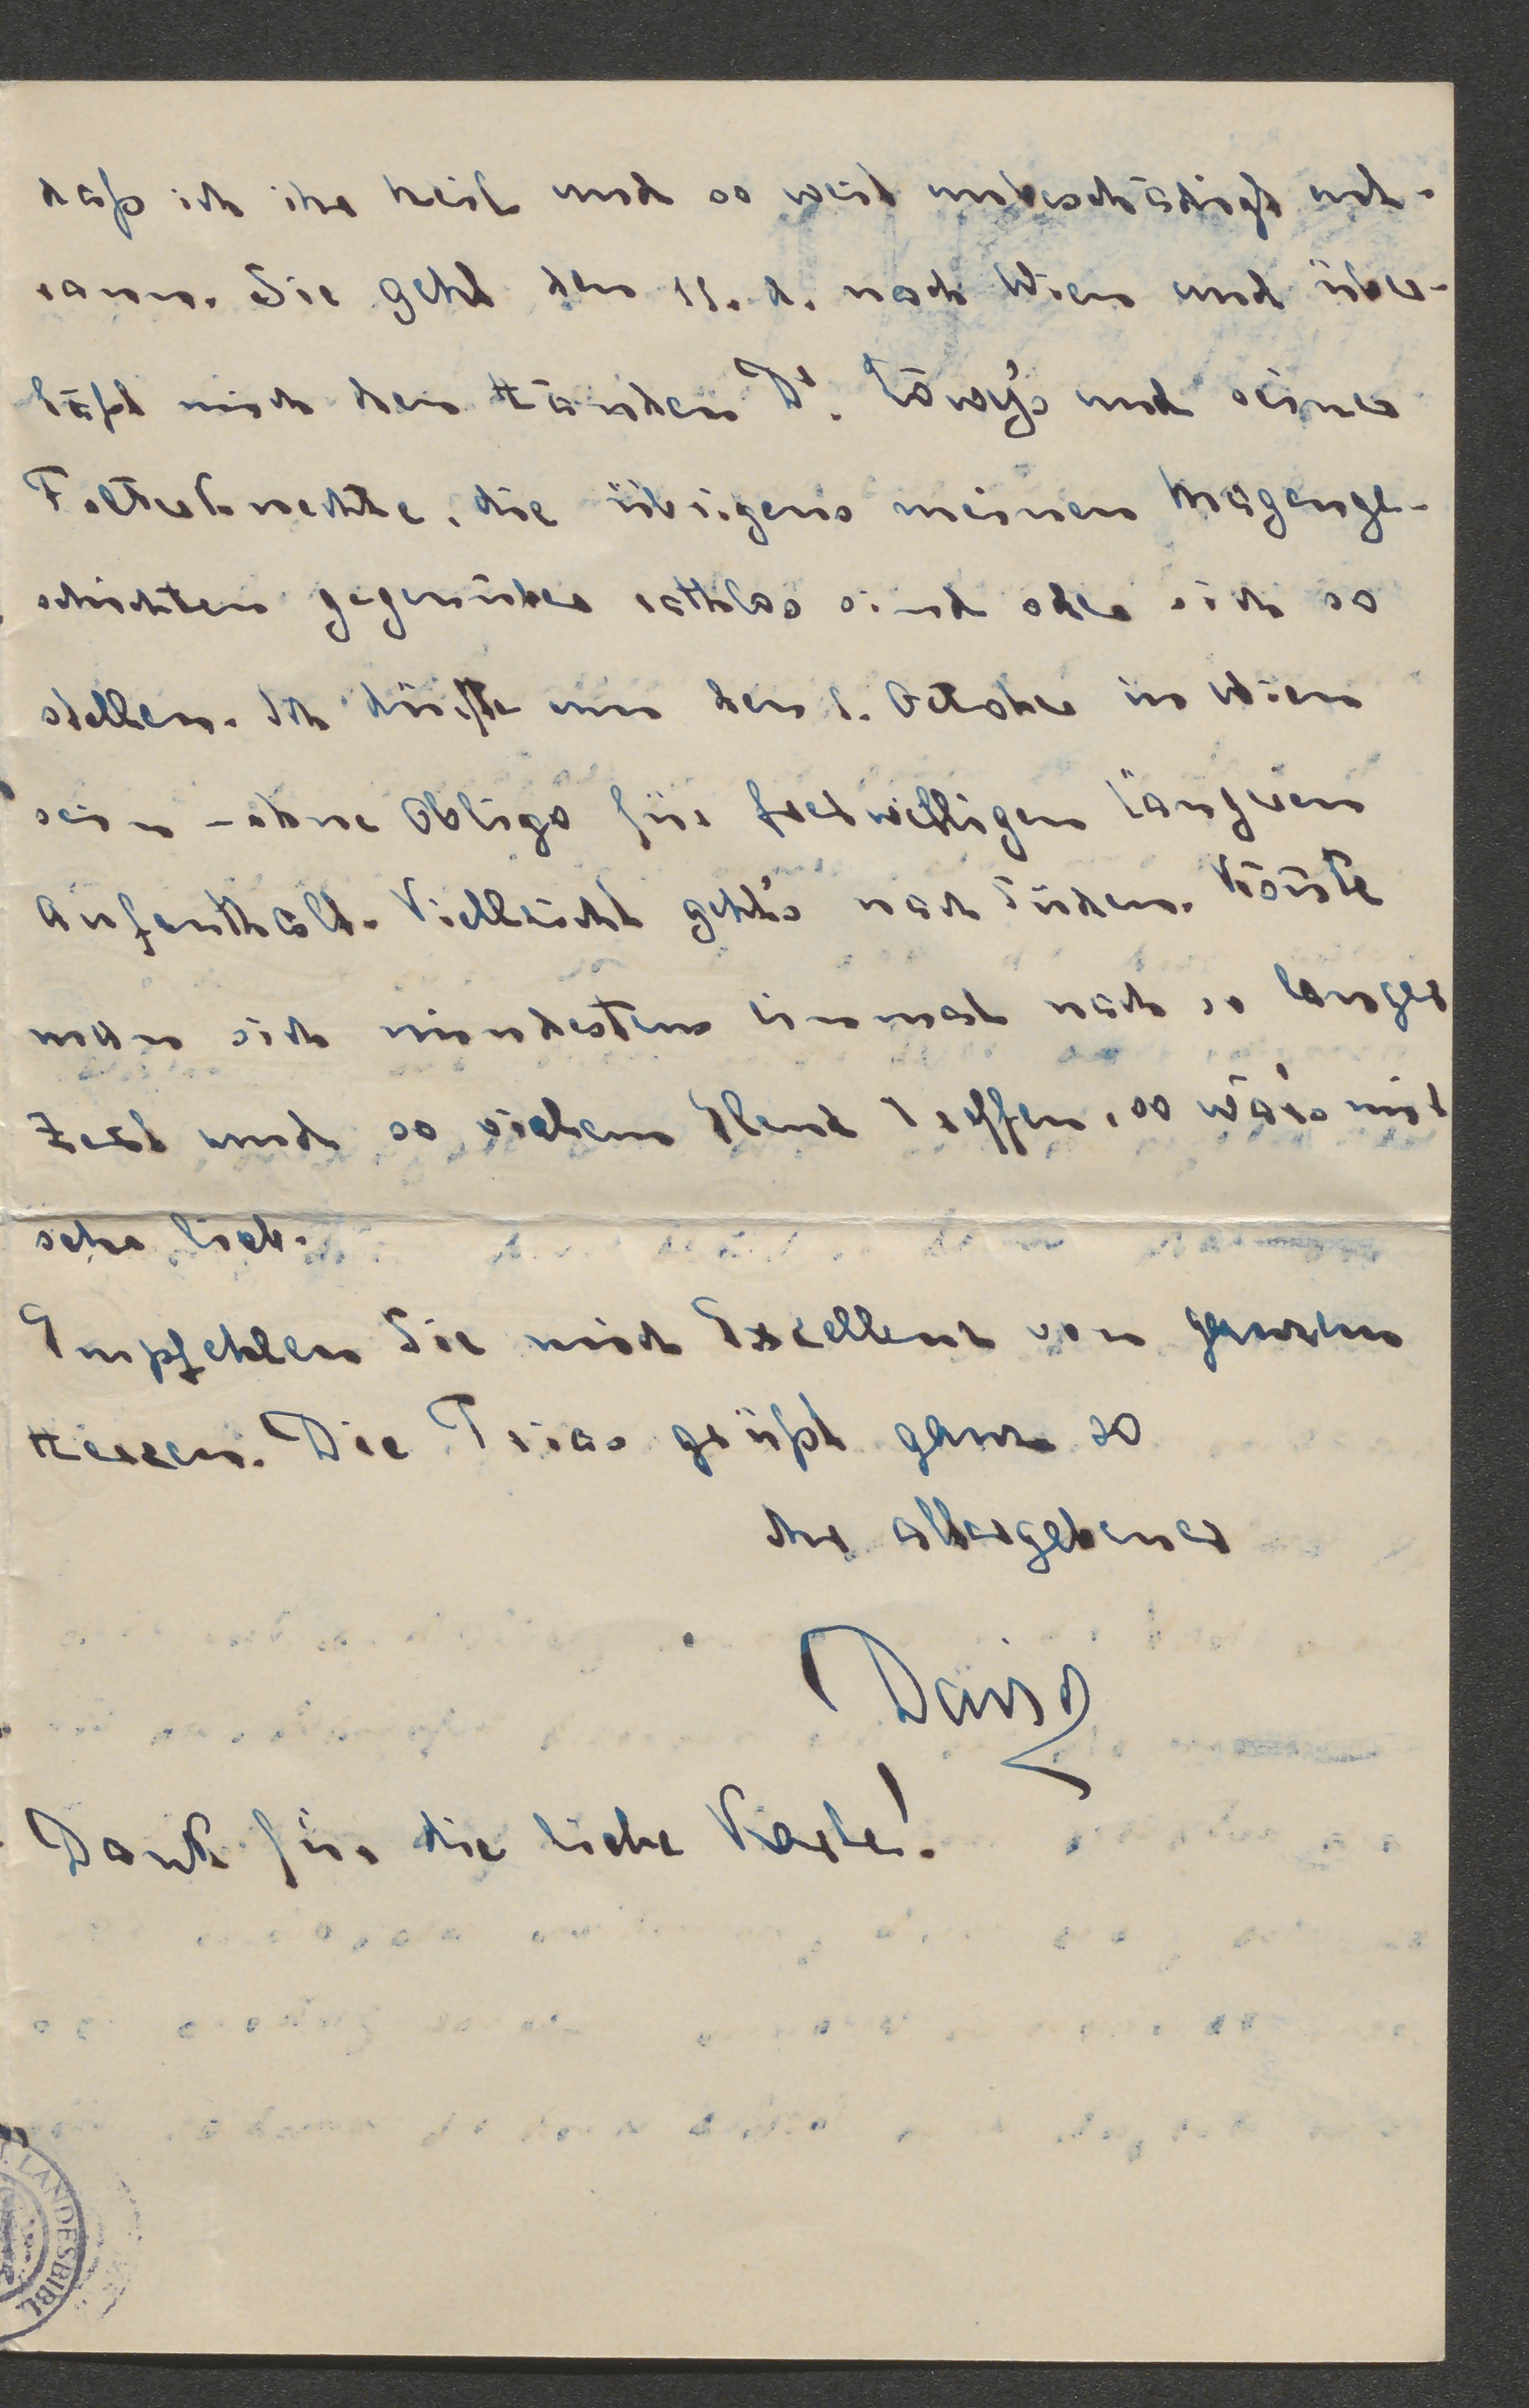 daß ich ihr heil und so weit unbeschädigt ent-
rann. Sie geht den 11. d. nach Wien und über-
läßt mich den Händen Dr. Löwy's und seiner
Folterknechte, die übrigens meinen Magenge-
schichten gegenüber rathlos sind oder sich so
stellen. Ich dürfte um den 1. October in Wien
sein – ohne Obligo für freiwilligen längeren
Aufenthalt. Vielleicht geht's nach Süden. Könnte
man sich mindestens einmal nach so langer
Zeit und so vielem Elend treffen, so wär's mir
sehr lieb.
Empfehlen Sie mich Excellenz von ganzem
Herzen. Die Trias grüßt ganz so
Ihr allergebener
David
Dank für die liebe Karte!
LANDESBIBL